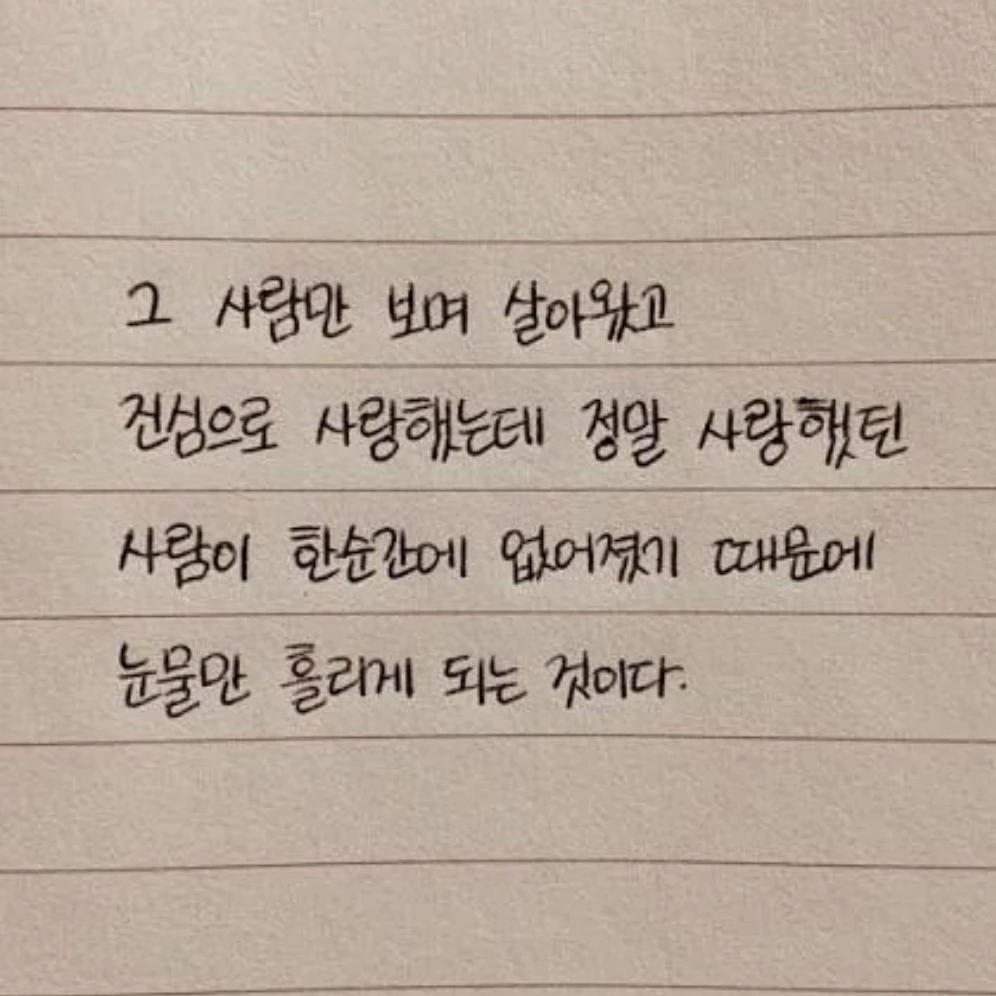 그 사람만 보며 살아왔고
진심으로 사랑했는데 정말 사랑했던
사람이 한순간에 없어졌기 때문에
눈물만 흘리게 되는 것이다.